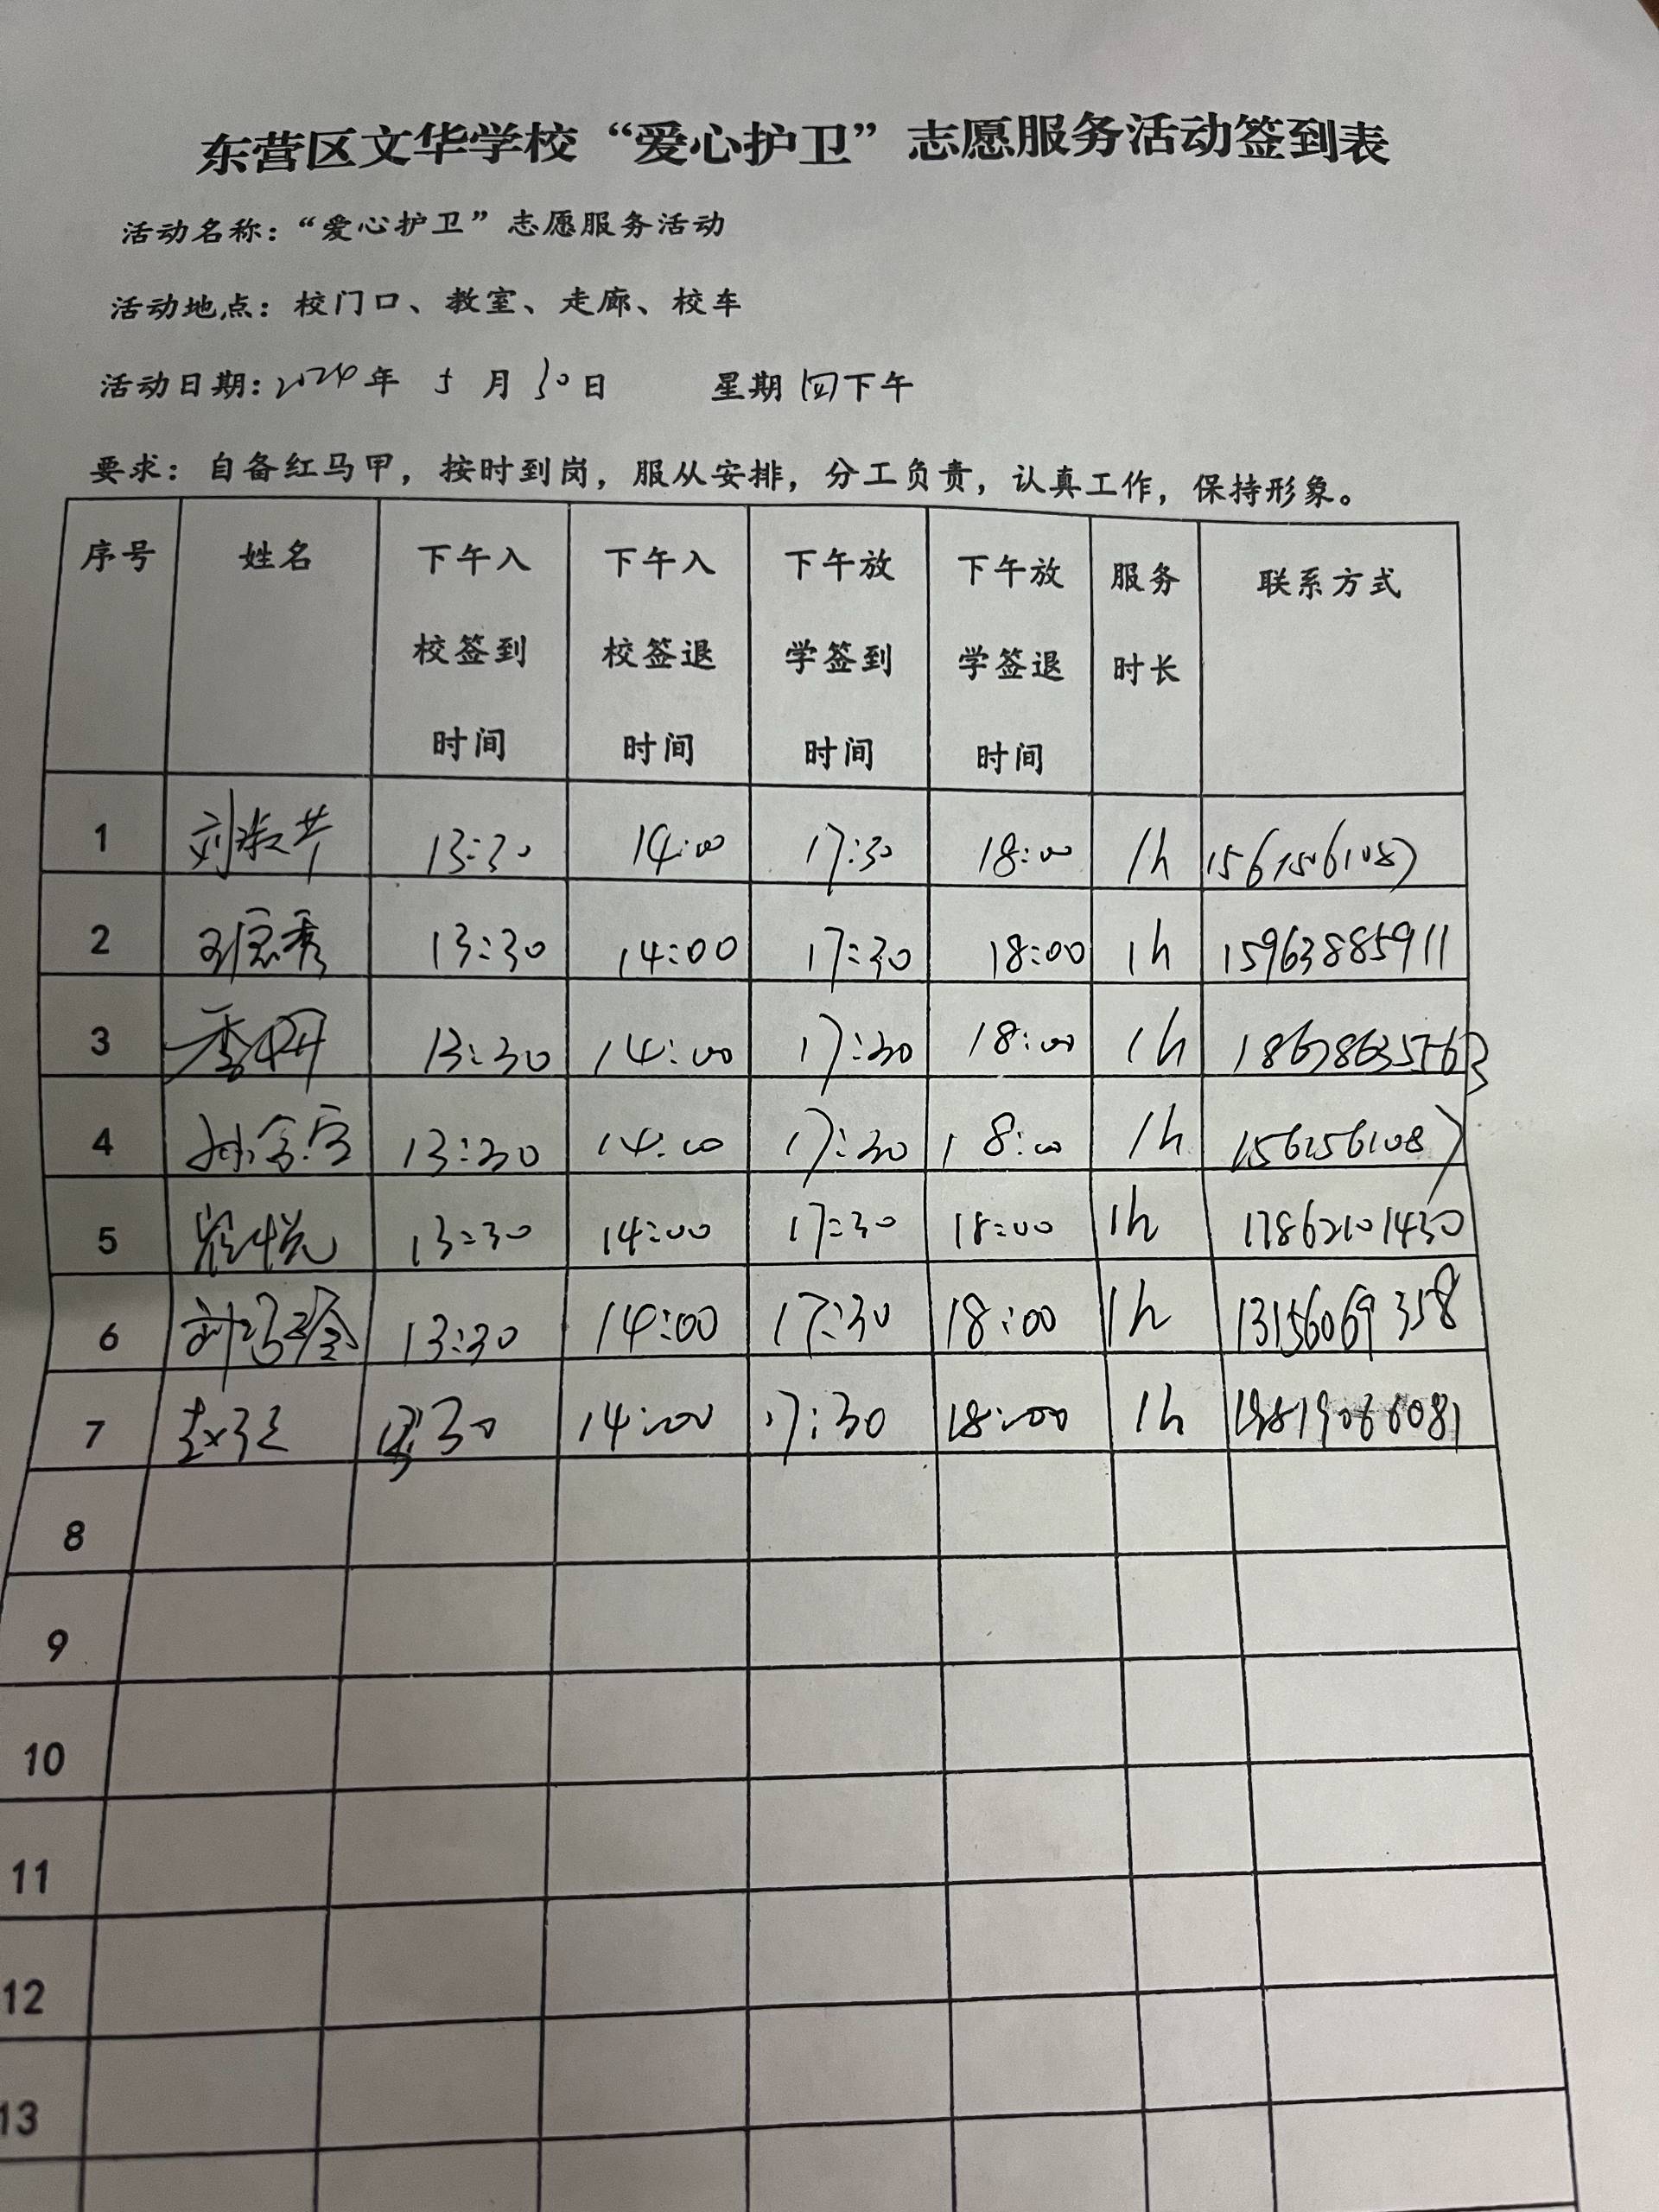 东营区文华学校“爱心护卫”志愿服务活动签到表
活动名称：“爱心护卫”志愿服务活动
活动地点：校门口、教室、走廊、校车
活动日期：2024年 5 月 30日 星期四下午
要求：自备红马甲，按时到岗，服从安排，分工负责，认真工作，保持形象。
序号 姓名 下午入校签到时间 下午入校签退时间 下午放学签到时间 下午放学签退时间 服务时长 联系方式
1 13:30 14:00 17:30 18:00 1h
2 13:30 14:00 17:30 18:00 1h 15963885911
3 13:30 14:00 17:30 18:00 1h
4 13:30 14:00 17:30 18:00 1h
5 崔悦 13:30 14:00 17:30 18:00 1h 17862101430
6 13:30 14:00 17:30 18:00 1h 13156069358
7 13:30 14:00 17:30 18:00 1h
8
9
10
11
12
13